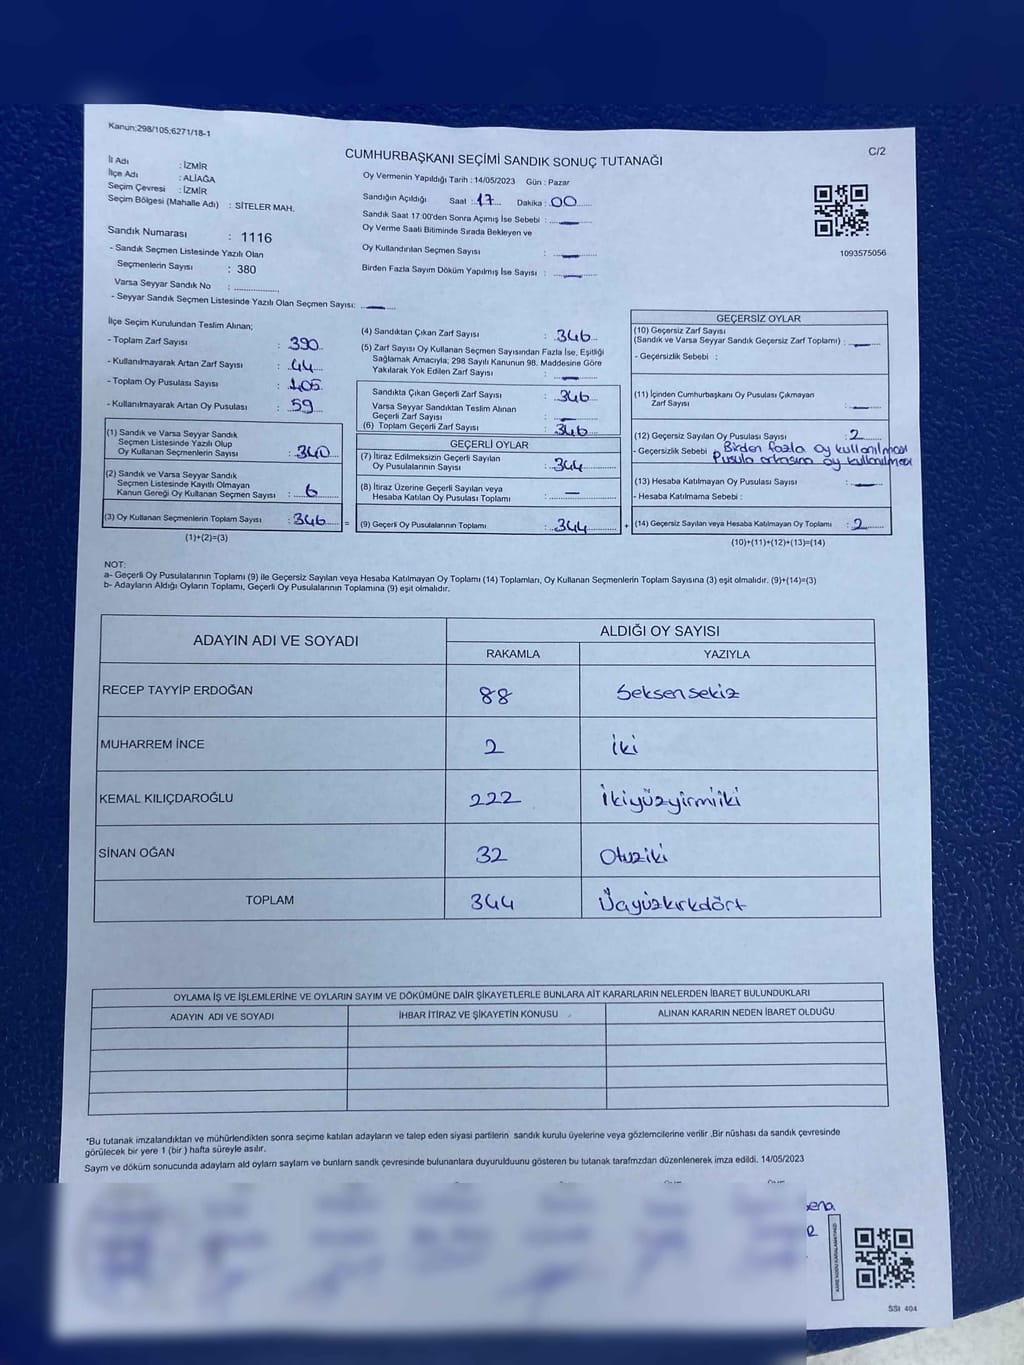 Kanun:298/105;6271/18-1
C/2
CUMHURBAŞKANI SEÇİMİ SANDIK SONUÇ TUTANAĞI
İl Adı : İZMİR
İlçe Adı : ALİAĞA
Seçim Çevresi : İZMİR
Seçim Bölgesi (Mahalle Adı) : SİTELER MAH.
Sandık Numarası : 1116
- Sandık Seçmen Listesinde Yazılı Olan
Seçmenlerin Sayısı : 380
Varsa Seyyar Sandık No : ................
- Seyyar Sandık Seçmen Listesinde Yazılı Olan Seçmen Sayısı: —
Oy Vermenin Yapıldığı Tarih : 14/05/2023 Gün : Pazar
Sandığın Açıldığı Saat : 17 Dakika : 00
Sandık Saat 17:00'den Sonra Açımış İse Sebebi : —
Oy Verme Saati Bitiminde Sırada Bekleyen ve
Oy Kullandırılan Seçmen Sayısı : —
Birden Fazla Sayım Döküm Yapılmış İse Sayısı : —
1093575056
İlçe Seçim Kurulundan Teslim Alınan;
- Toplam Zarf Sayısı : 390
- Kullanılmayarak Artan Zarf Sayısı : 44
- Toplam Oy Pusulası Sayısı : 405
- Kullanılmayarak Artan Oy Pusulası : 59
(1) Sandık ve Varsa Seyyar Sandık
Seçmen Listesinde Yazılı Olup
Oy Kullanan Seçmenlerin Sayısı : 340
(2) Sandık ve Varsa Seyyar Sandık
Seçmen Listesinde Kayıtlı Olmayan
Kanun Gereği Oy Kullanan Seçmen Sayısı : 6
(3) Oy Kullanan Seçmenlerin Toplam Sayısı : 346 =
(1)+(2)=(3)
(4) Sandıktan Çıkan Zarf Sayısı : 346
(5) Zarf Sayısı Oy Kullanan Seçmen Sayısından Fazla İse, Eşitliği
Sağlamak Amacıyla; 298 Sayılı Kanunun 98. Maddesine Göre
Yakılarak Yok Edilen Zarf Sayısı : —
Sandıkta Çıkan Geçerli Zarf Sayısı : 346
Varsa Seyyar Sandıktan Teslim Alınan
Geçerli Zarf Sayısı : —
(6) Toplam Geçerli Zarf Sayısı : 346
GEÇERLİ OYLAR
(7) İtiraz Edilmeksizin Geçerli Sayılan
Oy Pusulalarının Sayısı : 344
(8) İtiraz Üzerine Geçerli Sayılan veya
Hesaba Katılan Oy Pusulası Toplamı : —
(9) Geçerli Oy Pusulalarının Toplamı : 344 +
GEÇERSİZ OYLAR
(10) Geçersiz Zarf Sayısı
(Sandık ve Varsa Seyyar Sandık Geçersiz Zarf Toplamı) : —
- Geçersizlik Sebebi :
(11) İçinden Cumhurbaşkanı Oy Pusulası Çıkmayan
Zarf Sayısı : —
(12) Geçersiz Sayılan Oy Pusulası Sayısı : 2
- Geçersizlik Sebebi : Birden fazla oy kullanılması
Pusula ortasına oy kullanılması
(13) Hesaba Katılmayan Oy Pusulası Sayısı : —
- Hesaba Katılmama Sebebi :
(14) Geçersiz Sayılan veya Hesaba Katılmayan Oy Toplamı : 2
(10)+(11)+(12)+(13)=(14)
NOT:
a- Geçerli Oy Pusulalarının Toplamı (9) ile Geçersiz Sayılan veya Hesaba Katılmayan Oy Toplamı (14) Toplamları, Oy Kullanan Seçmenlerin Toplam Sayısına (3) eşit olmalıdır. (9)+(14)=(3)
b- Adayların Aldığı Oyların Toplamı, Geçerli Oy Pusulalarının Toplamına (9) eşit olmalıdır.
ADAYIN ADI VE SOYADI
ALDIĞI OY SAYISI
RAKAMLA YAZIYLA
RECEP TAYYİP ERDOĞAN 88 Seksensekiz
MUHARREM İNCE 2 İki
KEMAL KILIÇDAROĞLU 222 İkiyüzyirmiiki
SİNAN OĞAN 32 Otuziki
TOPLAM 344 Üçyüzkırkdört
OYLAMA İŞ VE İŞLEMLERİNE VE OYLARIN SAYIM VE DÖKÜMÜNE DAİR ŞİKAYETLERLE BUNLARA AİT KARARLARIN NELERDEN İBARET BULUNDUKLARI
ADAYIN ADI VE SOYADI İHBAR İTİRAZ VE ŞİKAYETİN KONUSU ALINAN KARARIN NEDEN İBARET OLDUĞU
*Bu tutanak imzalandıktan ve mühürlendikten sonra seçime katılan adayların ve talep eden siyasi partilerin sandık kurulu üyelerine veya gözlemcilerine verilir .Bir nüshası da sandık çevresinde
görülecek bir yere 1 (bir ) hafta süreyle asılır.
Saym ve döküm sonucunda adaylarn ald oylarn saylarn ve bunlarn sandk çevresinde bulunanlara duyurulduunu gösteren bu tutanak tarafmzdan düzenlenerek imza edildi. 14/05/2023
SSI 404